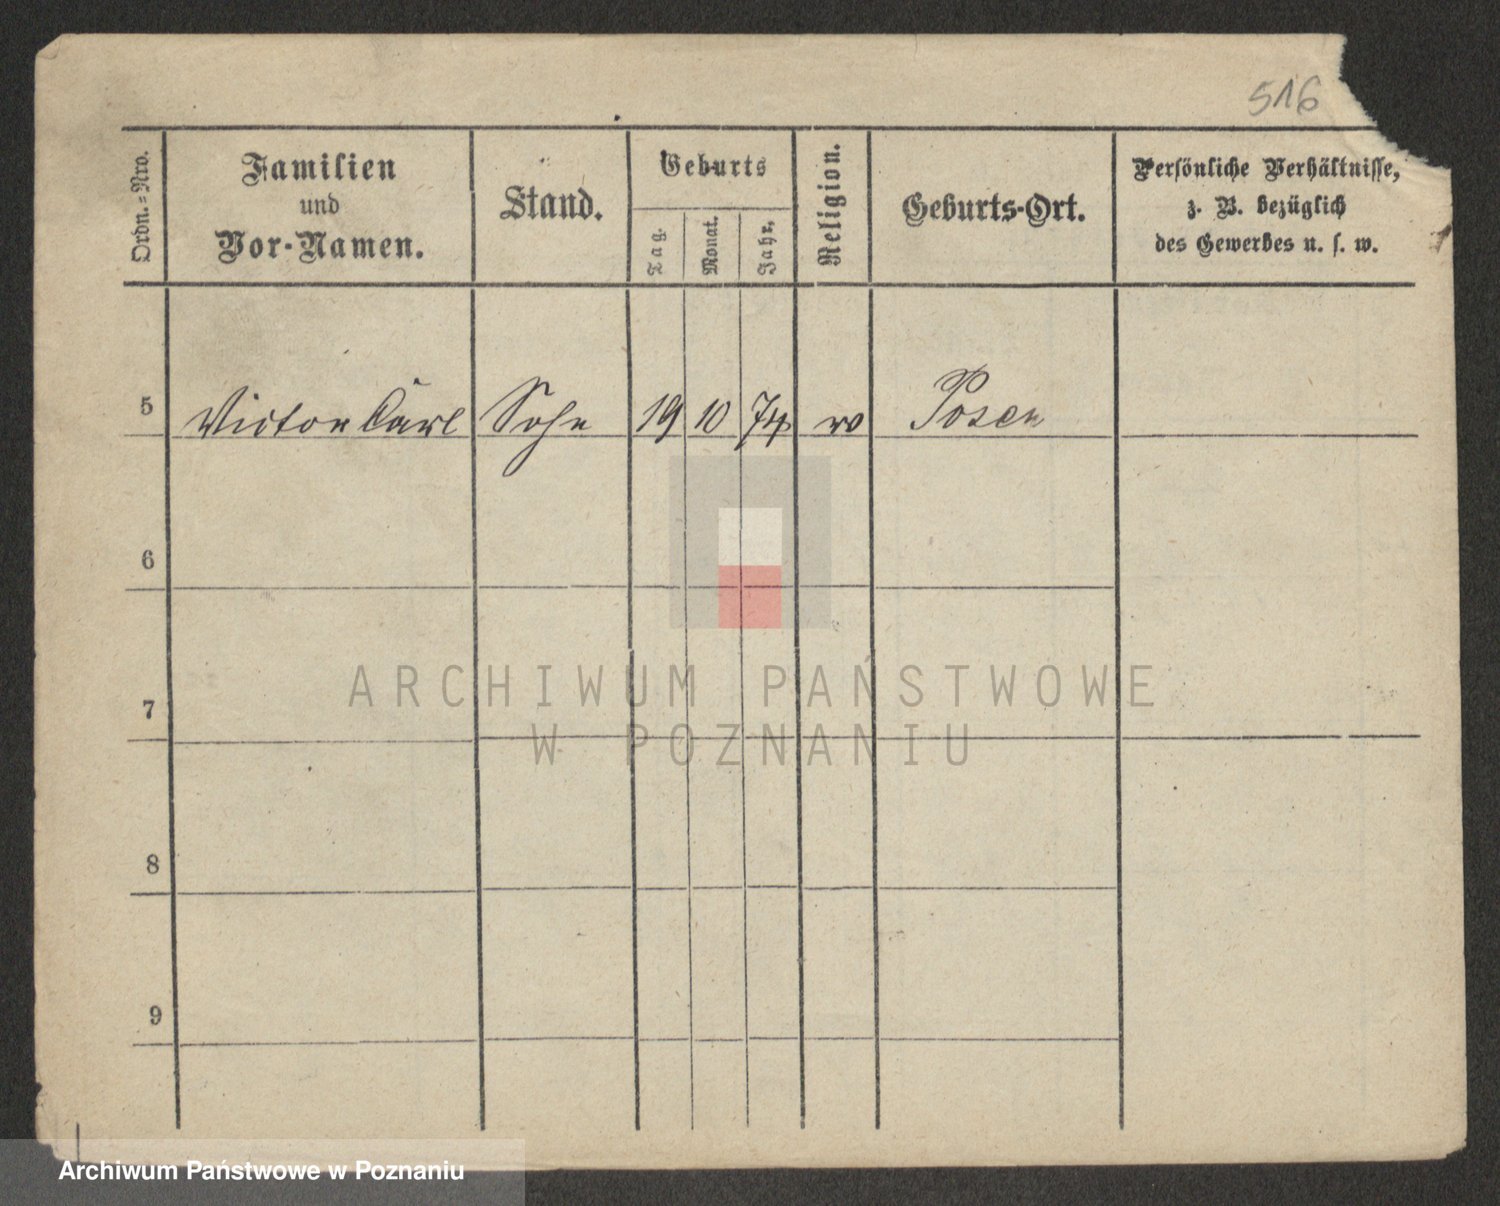 516
Ordn.-Nro.
Familien
und
Vor-Namen.
Stand.
Geburts
Tag.
Monat.
Jahr.
Religion.
Geburts-Ort.
Persönliche Verhältnisse,
z. B. bezüglich
des Gewerbes u. s. w.
5 Victor Carl Sohn 19 10 74 Posen
6
7
8
9
ARCHIWUM PAŃSTWOWE
W POZNANIU
Archiwum Państwowe w Poznaniu